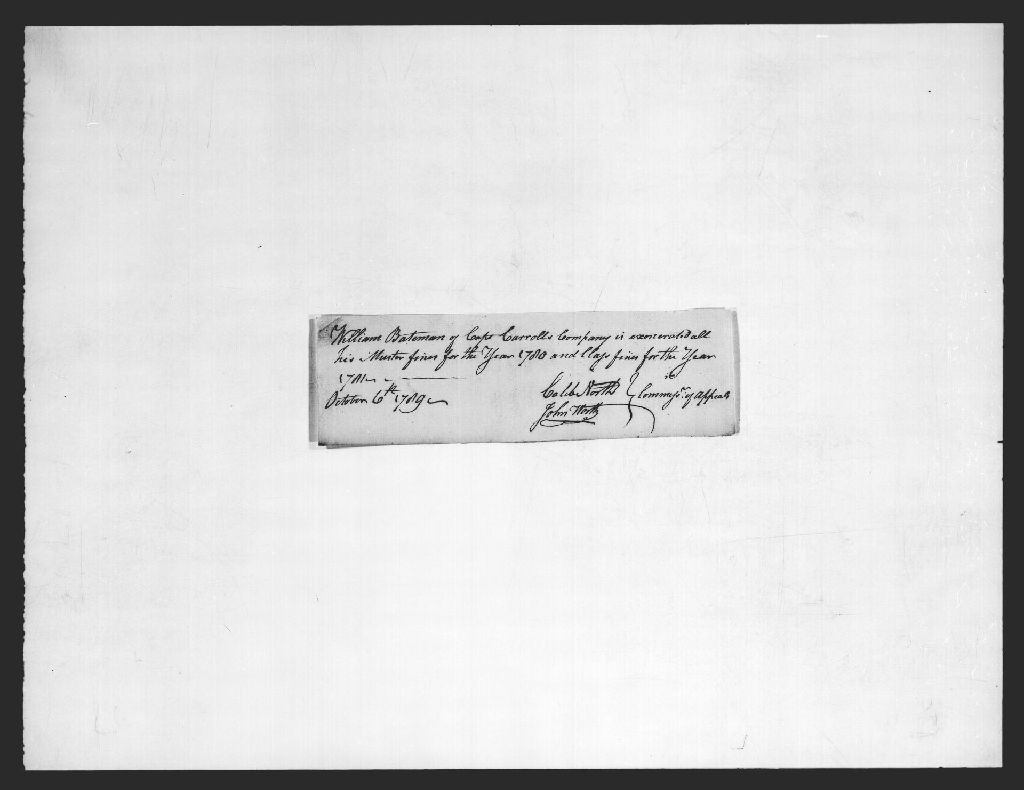 William Bateman of Capt Carrolls Company is exonerated all
his Muster fines for the Year 1780 and Class fines for the Year
1781
October 6th 1789 Caleb North
John North
Commissrs of Appeals